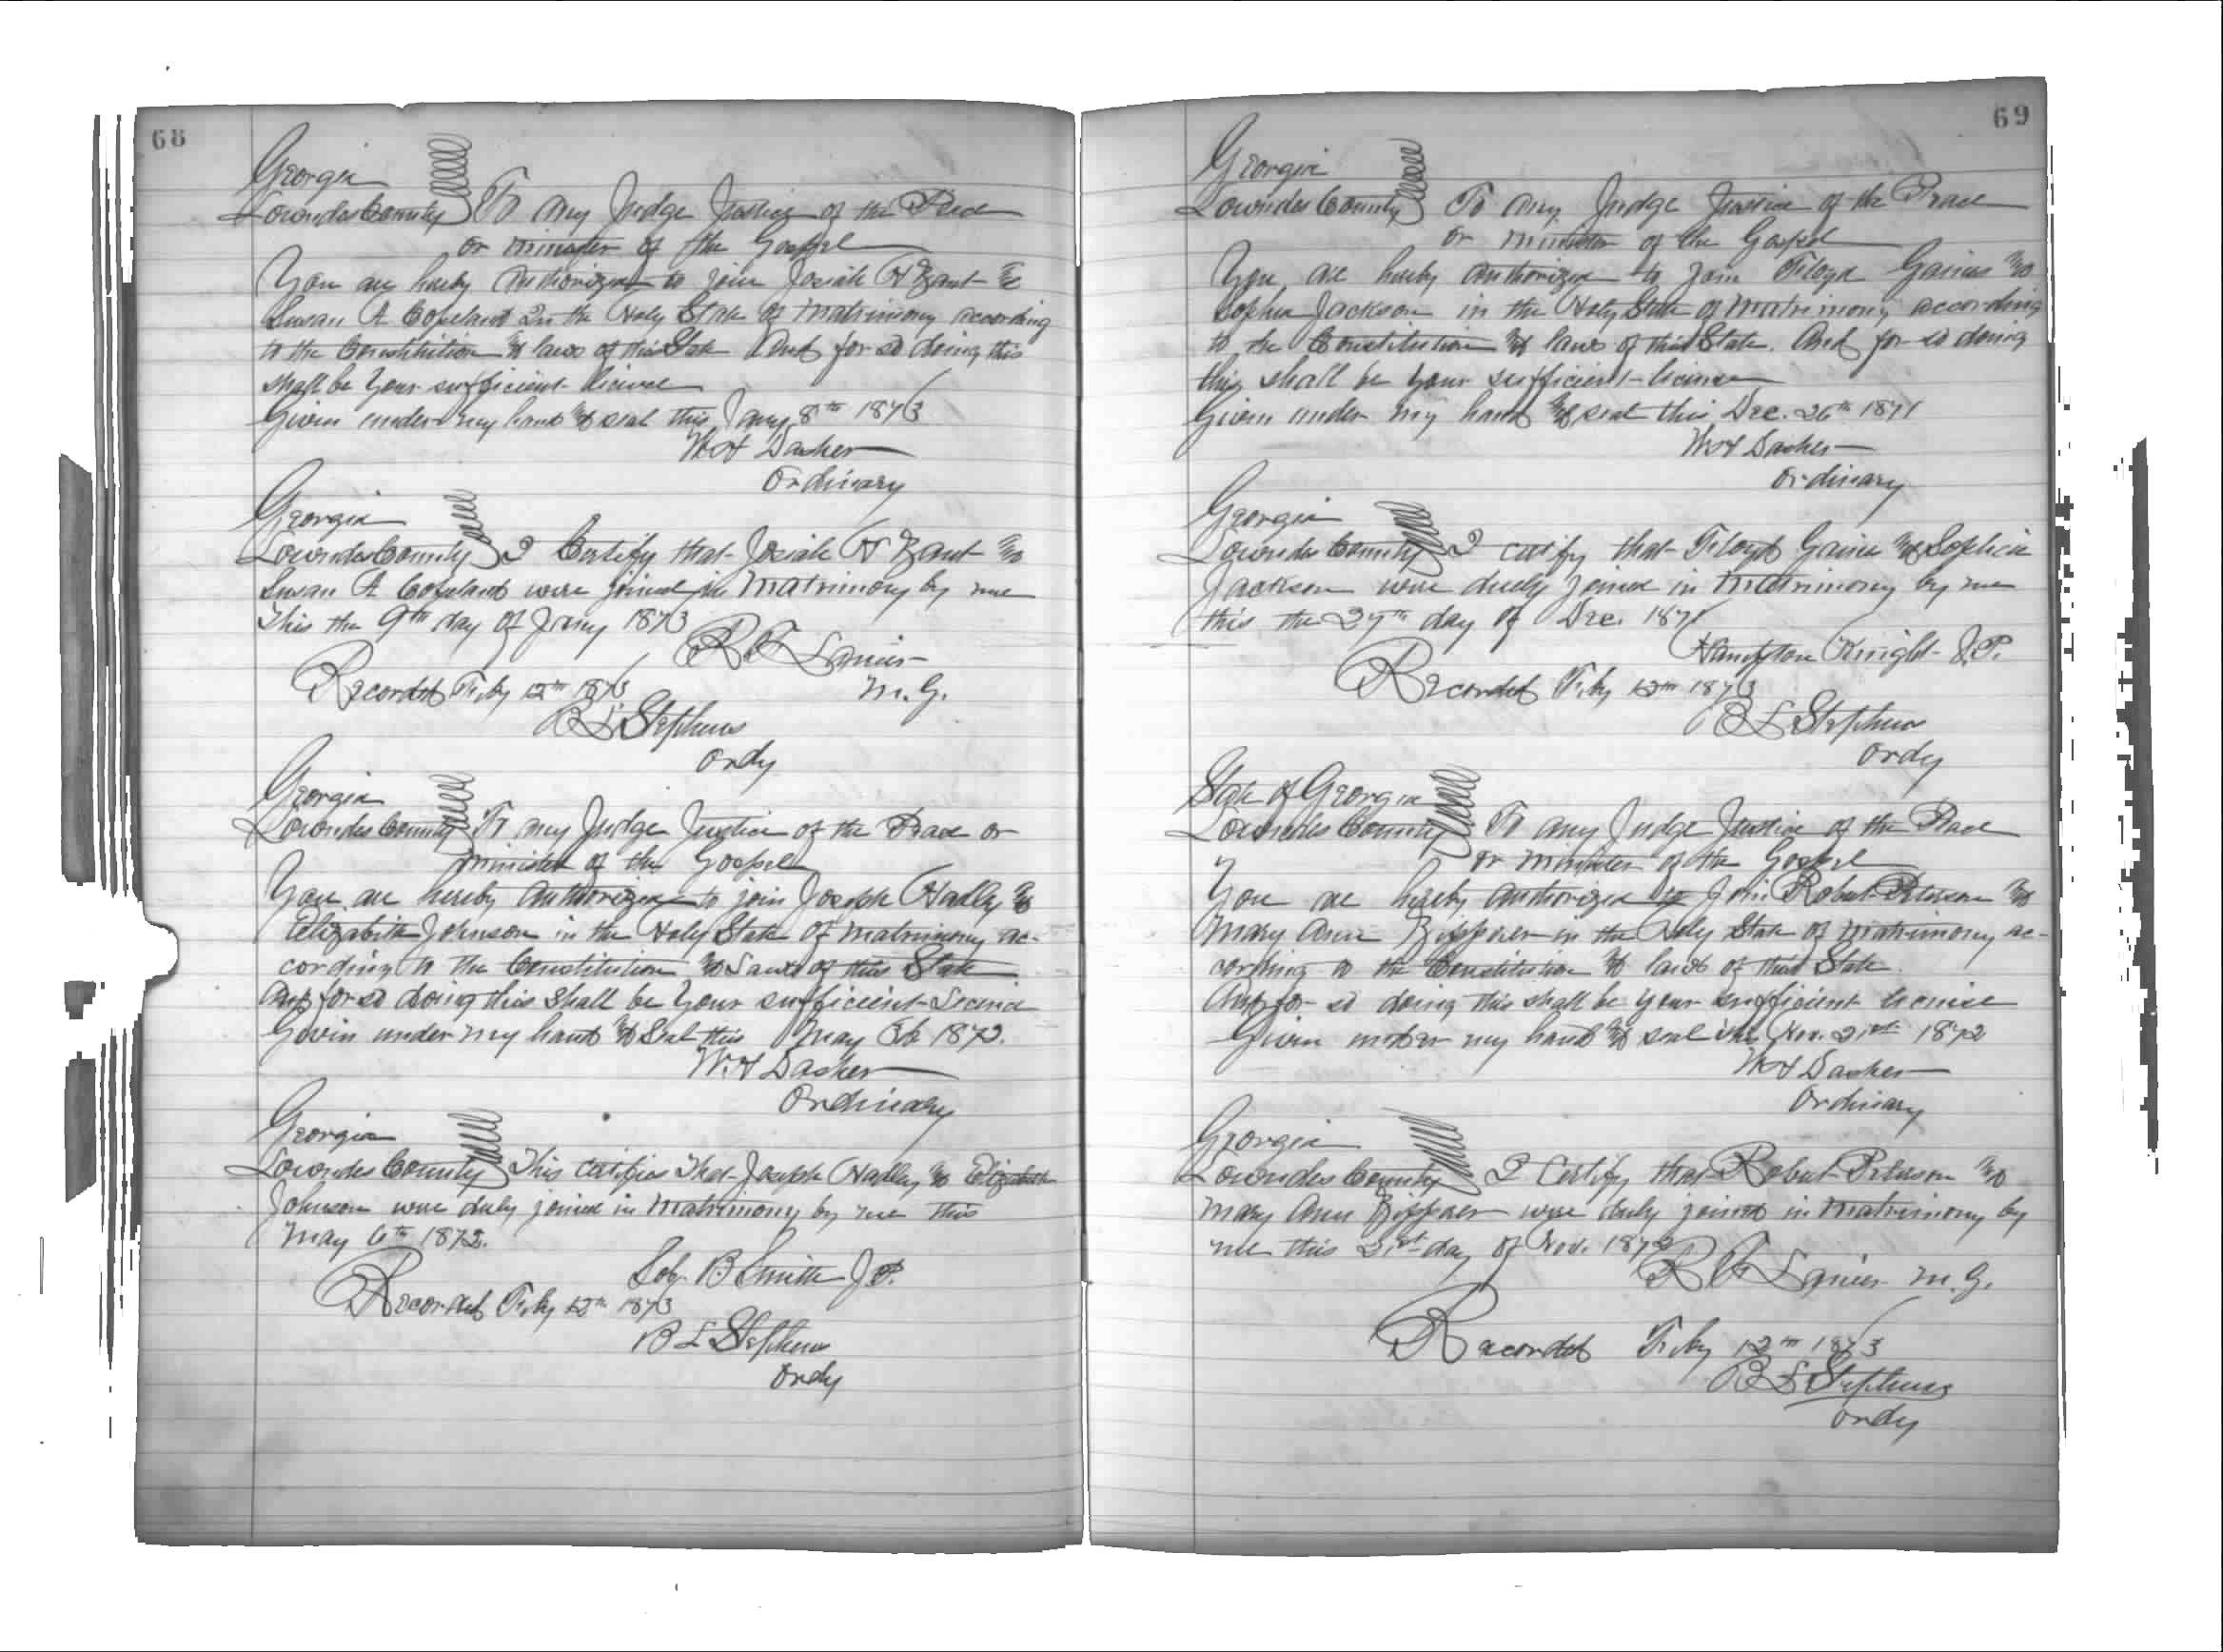 68
Georgia
Lowndes County To any Judge Justice of the Peace
or minister of the Gospel
You are hereby Authorized to join Josiah H Zant &
Susan A Copeland In the Holy State of Matrimony according
to the Constitution & laws of this State And for so doing this
shall be Your sufficient license
Given under my hand & seal this Jany 8th 1873
W H Dasher
Ordinary
Georgia
Lowndes County I Certify that Josiah H Zant &
Susan A Copeland were joined in Matrimony by me
This the 9th day of Jany 1873
R F Lanier
M. G.
Recorded Feby 12th 1873
B L Stephens
Ordy
Georgia
Lowndes County To any Judge Justice of the Peace or
minister of the Gospel
You are hereby Authorized to join Joseph Hadley &
Elizabeth Johnson in the Holy State of Matrimony ac-
cording to the Constitution & Laws of this State
And for so doing this shall be Your sufficient License
Given under my hand & Seal this May 1872.
W. H Dasher
Ordinary
Georgia
Lowndes County This certifies That Joseph Hadley & Elizabeth
Johnson were duly joined in Matrimony by me this
May 6th 1872.
B Smith J P.
Recorded Feby 12th 1873
B L Stephens
Ordy
69
Georgia
Lowndes County To any Judge Justice of the Peace
or minister of the Gospel
You are hereby authorized to join Floyd Gaines &
Sophia Jackson in the Holy State of Matrimony according
to the Constitution & laws of this State. And for so doing
this shall be your sufficient license
Given under my hand & seal this Dec. 26th 1871
W H Dasher
Ordinary
Georgia
Lowndes County I certify that Floyd Gaines & Sophia
Jackson were duly joined in Matrimony by me
this the 27th day of Dec. 1871
Hampton Knight J. P.
Recorded Feby 12th 1873
B L Stephens
Ordy
State of Georgia
Lowndes County To any Judge Justice of the Peace
or minister of the Gospel
You are hereby authorized to join Robert Peterson &
Mary Ann Zipperer in the Holy State of Matrimony ac-
cording to the Constitution & laws of this State
And for so doing this shall be your sufficient license
Given under my hand & seal this Nov. 21st 1872
W H Dasher
Ordinary
Georgia
Lowndes County I Certify that Robert Peterson &
Mary Ann Zipperer were duly joined in Matrimony by
me this 21st day of Nov. 1872
R F Lanier M. G.
Recorded Feby 12th 1873
B L Stephens
Ordy